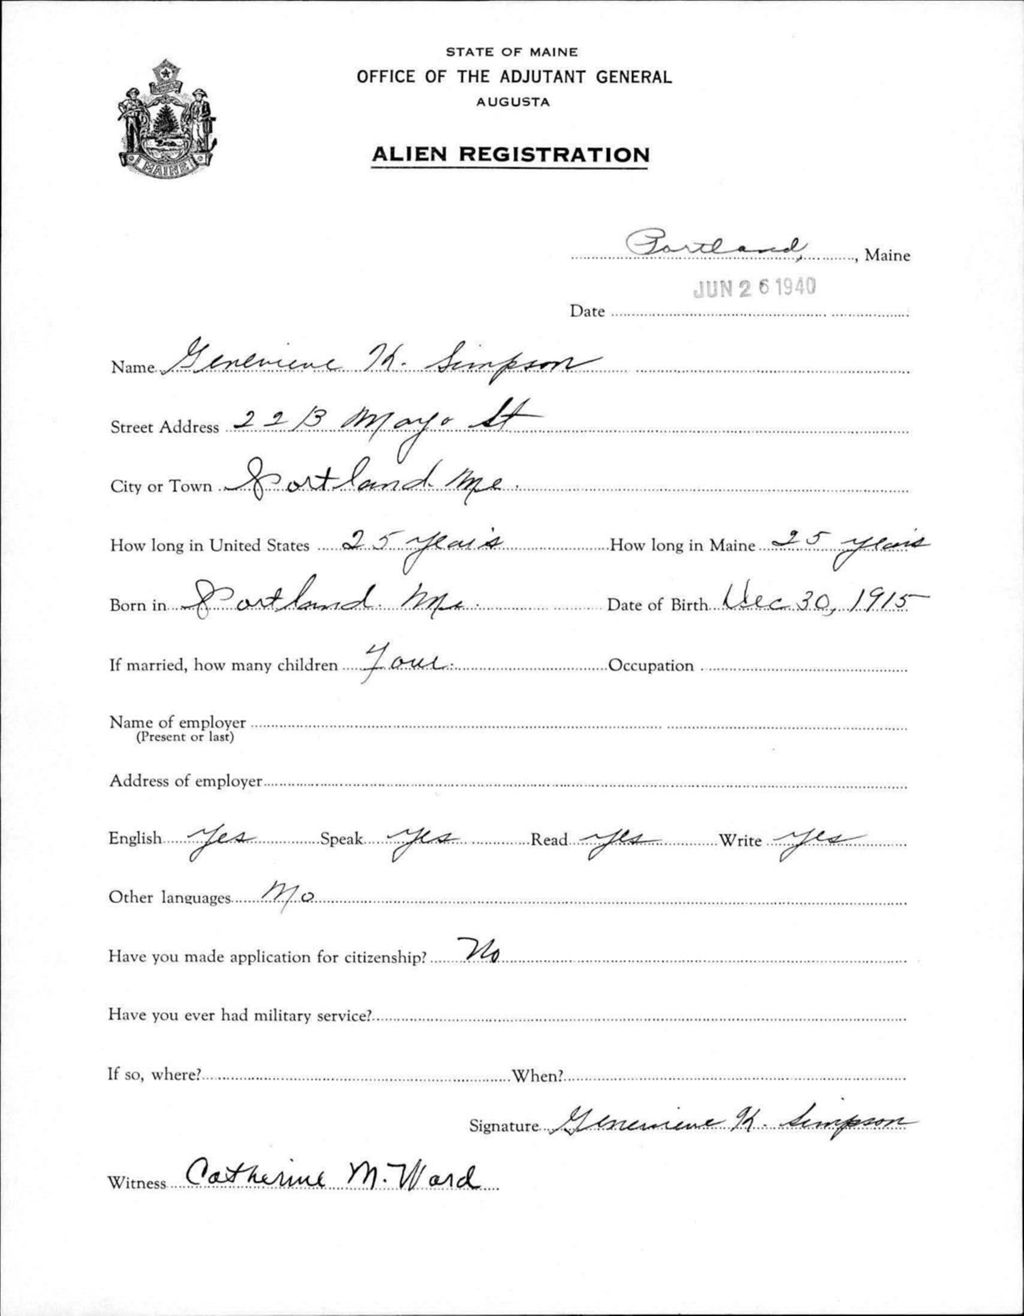 STATE OF MAINE
OFFICE OF THE ADJUTANT GENERAL
AUGUSTA
ALIEN REGISTRATION
MAINE
Portland, Maine
JUN 26 1940
Date
Name Genevieve K. Simpson
Street Address 22 B Mayo St
City or Town Portland Me.
How long in United States 25 years How long in Maine 25 years
Born in Portland Me. Date of Birth Dec 30, 1915
If married, how many children Four. Occupation
Name of employer
(Present or last)
Address of employer
English Yes Speak Yes Read Yes Write Yes
Other languages No
Have you made application for citizenship? No
Have you ever had military service?
If so, where? When?
Signature Genevieve K. Simpson
Witness Catherine M. Ward